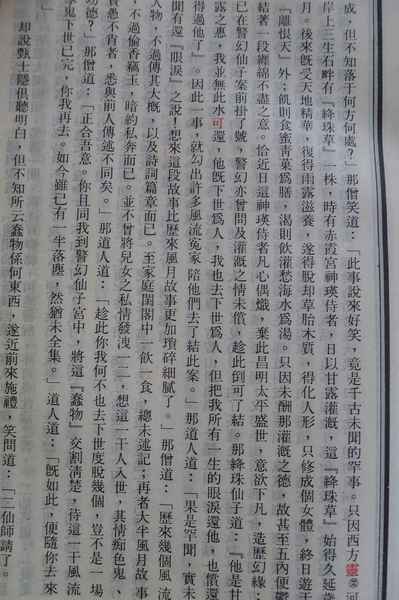 成，但不知落于何方何處？」那僧笑道：「此事說來好笑，竟是千古未聞的罕事。只因西方靈河
岸上三生石畔有『絳珠草』一株，時有赤霞宮神瑛侍者，日以甘露灌溉，這『絳珠草』始得久延歲
月。後來既受天地精華，復得雨露滋養，遂得脫卻草胎木質，得化人形，只修成個女體，終日遊于
『離恨天』外；飢則食蜜青菓爲膳，渴則飲灌愁海水爲湯。只因未酬那灌溉之德，故甚至五內便鬱
結著一段纏綿不盡之意。恰近日這神瑛侍者凡心偶熾，乘此昌明太平盛世，意欲下凡，造歷幻緣；
已在警幻仙子案前掛了號，警幻亦曾問及灌溉之情未償，趁此倒可了結。那絳珠仙子道：『他是甘
露之惠，我並無此水可還，他既下世爲人，我也去下世爲人，但把我所有一生的眼淚還他，也償還
得過他了』。因此一事，就勾出許多風流冤家陪他們去了結此案。」那道人道：「果是罕聞，實未
聞有還『眼淚』之說！想來這段故事比歷來風月故事更加瑣碎細膩了。」那僧道：「歷來幾個風流
人物，不過傳其大槪，以及詩詞篇章而已。至家庭閨閣中一飲一食，總未述記；再者大半風月故事
，不過偷香竊玉，暗約私奔而已。並不曾將兒女之私情發洩一二，想這一干人入世，其情痴色鬼、
賢愚不肖者，悉與前人傳述不同矣。」那道人道：「趁此你我何不也去下世度脫幾個，豈不是一場
功德？」那僧道：「正合吾意。你且同我到警幻仙子宮中，將這『蠢物』交割清楚，待這一干風流
孽鬼下世已完，你我再去。如今雖已有一半落塵，然猶未全集。」道人道：「既如此，便隨你去來
却說甄士隱俱聽明白，但不知所云蠢物係何東西，遂近前來施禮，笑問道：「二仙師請了。